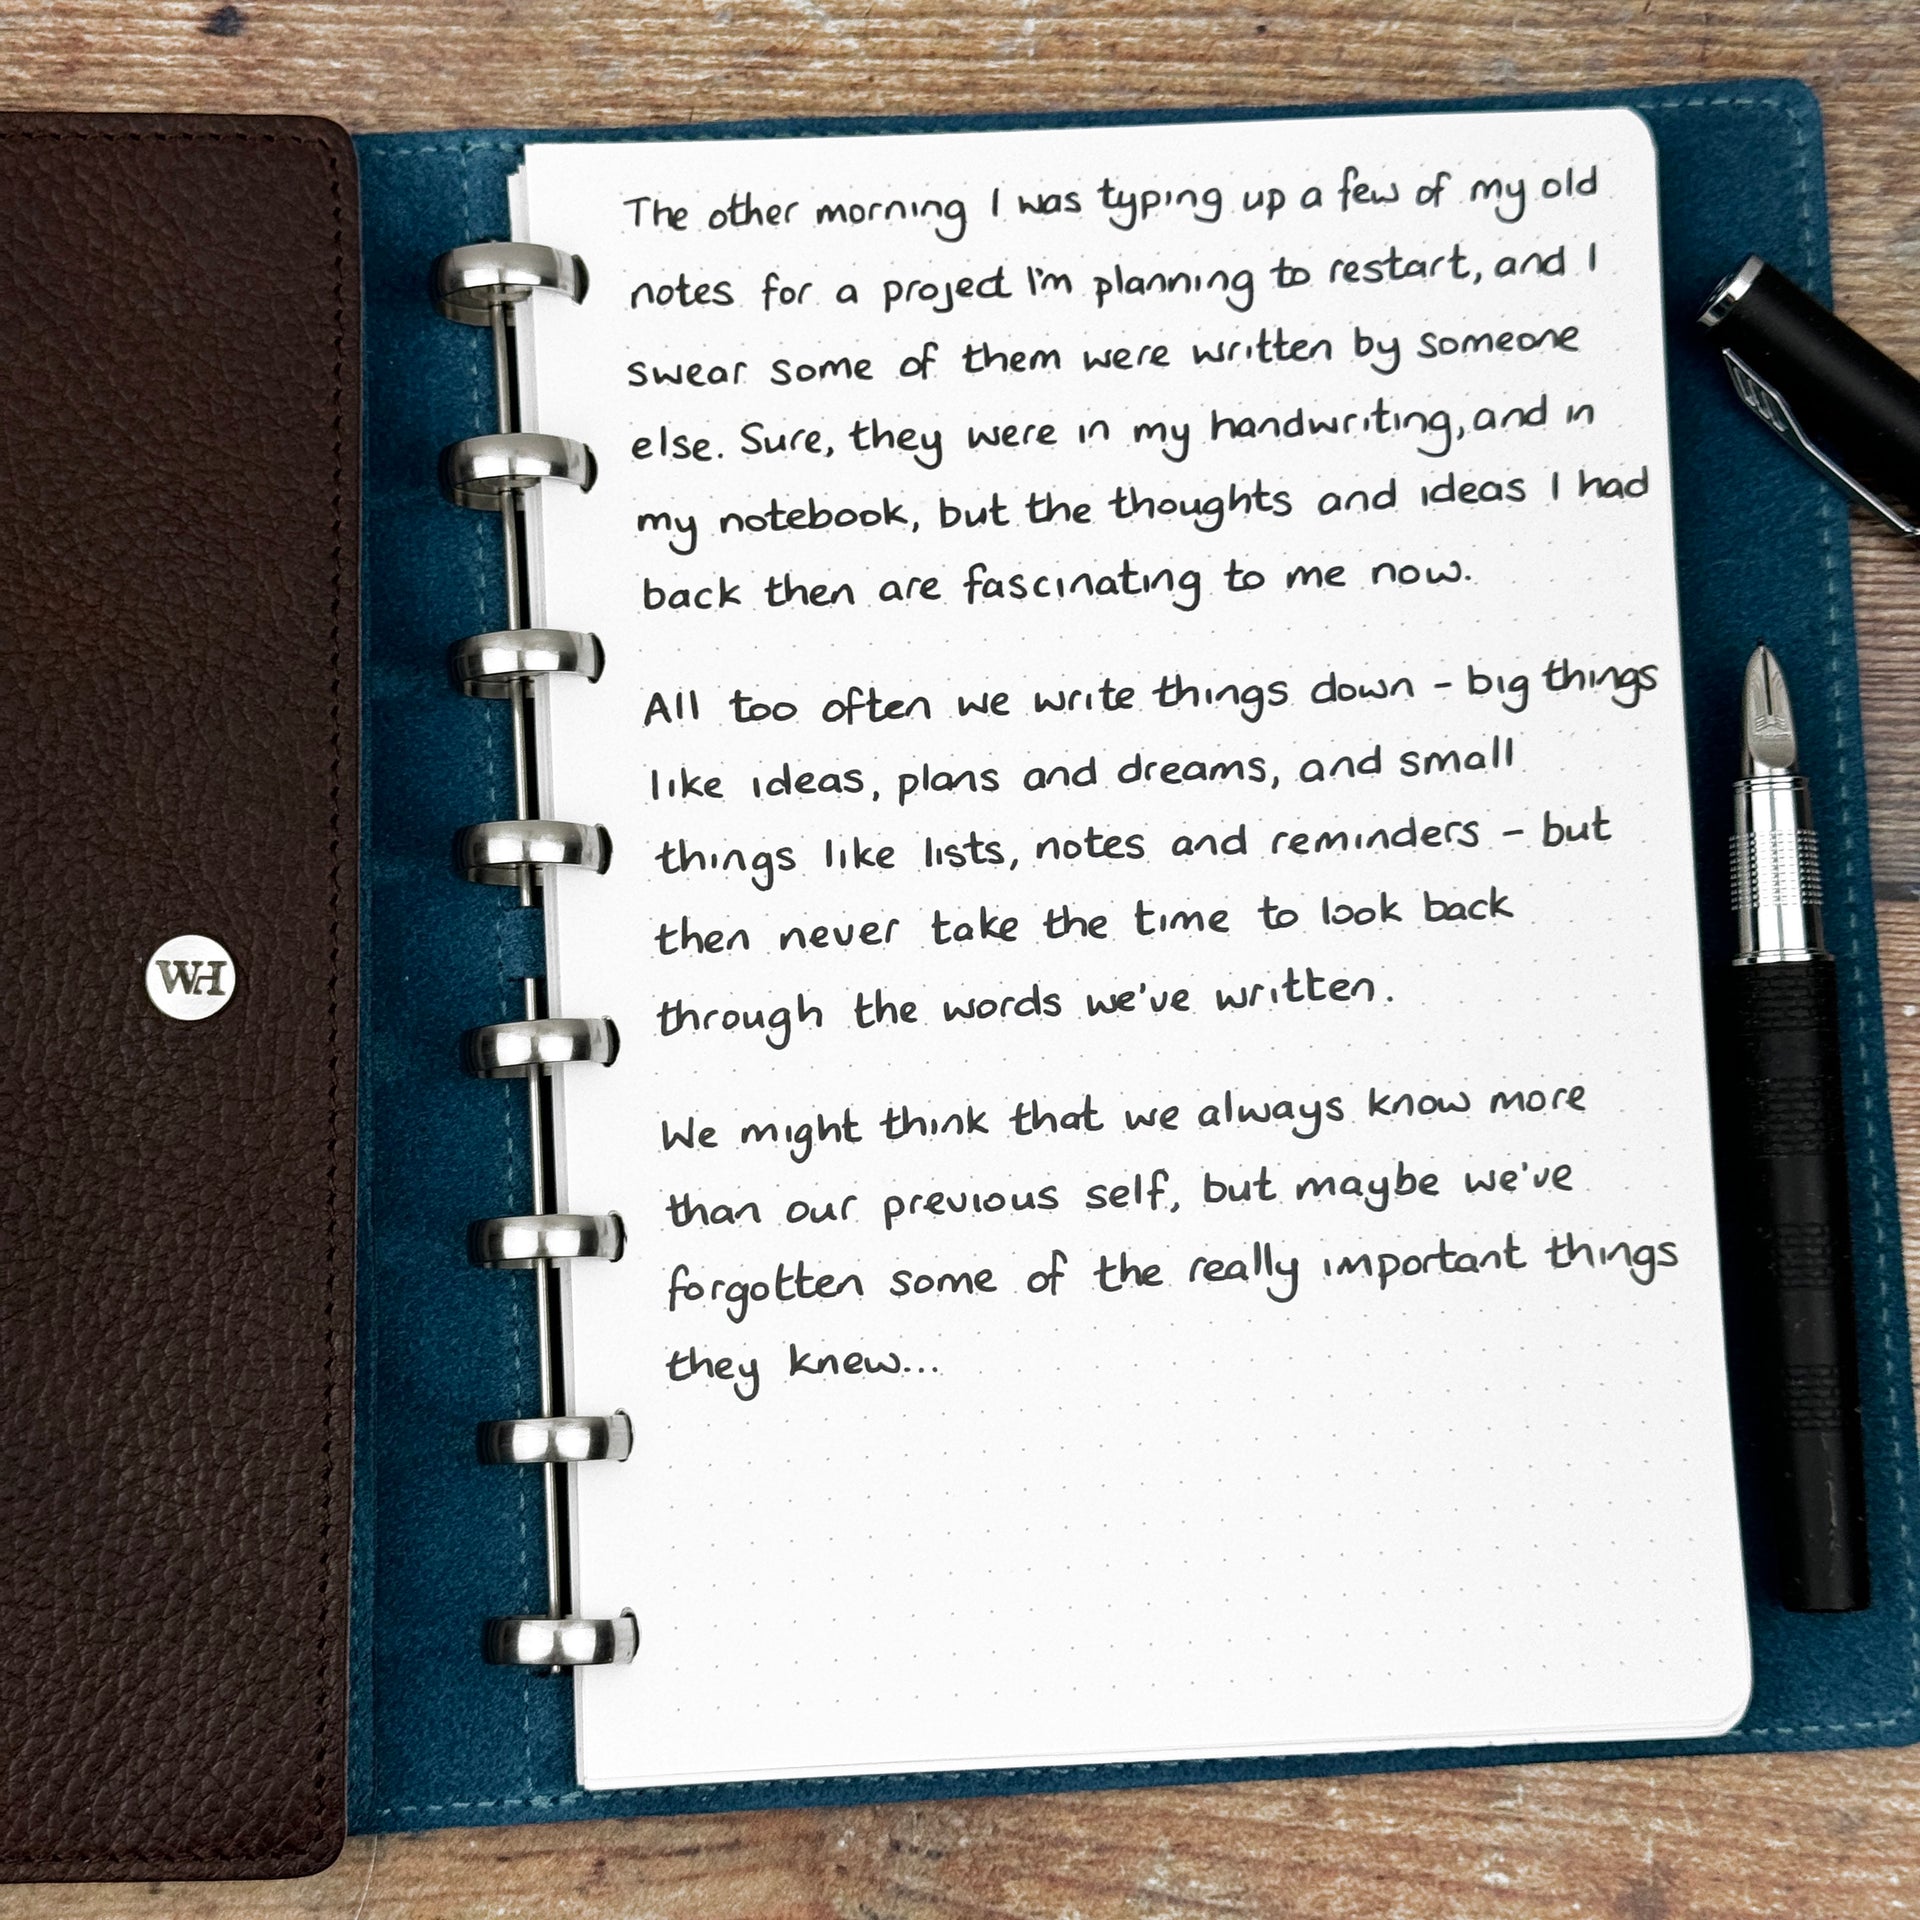 The other morning I was typing up a few of my old
notes for a project I'm planning to restart, and I
swear some of them were written by someone
else. Sure, they were in my handwriting, and in
my notebook, but the thoughts and ideas I had
back then are fascinating to me now.
All too often we write things down - big things
like ideas, plans and dreams, and small
things like lists, notes and reminders - but
then never take the time to look back
through the words we've written.
We might think that we always know more
than our previous self, but maybe we've
forgotten some of the really important things
they knew...
WH